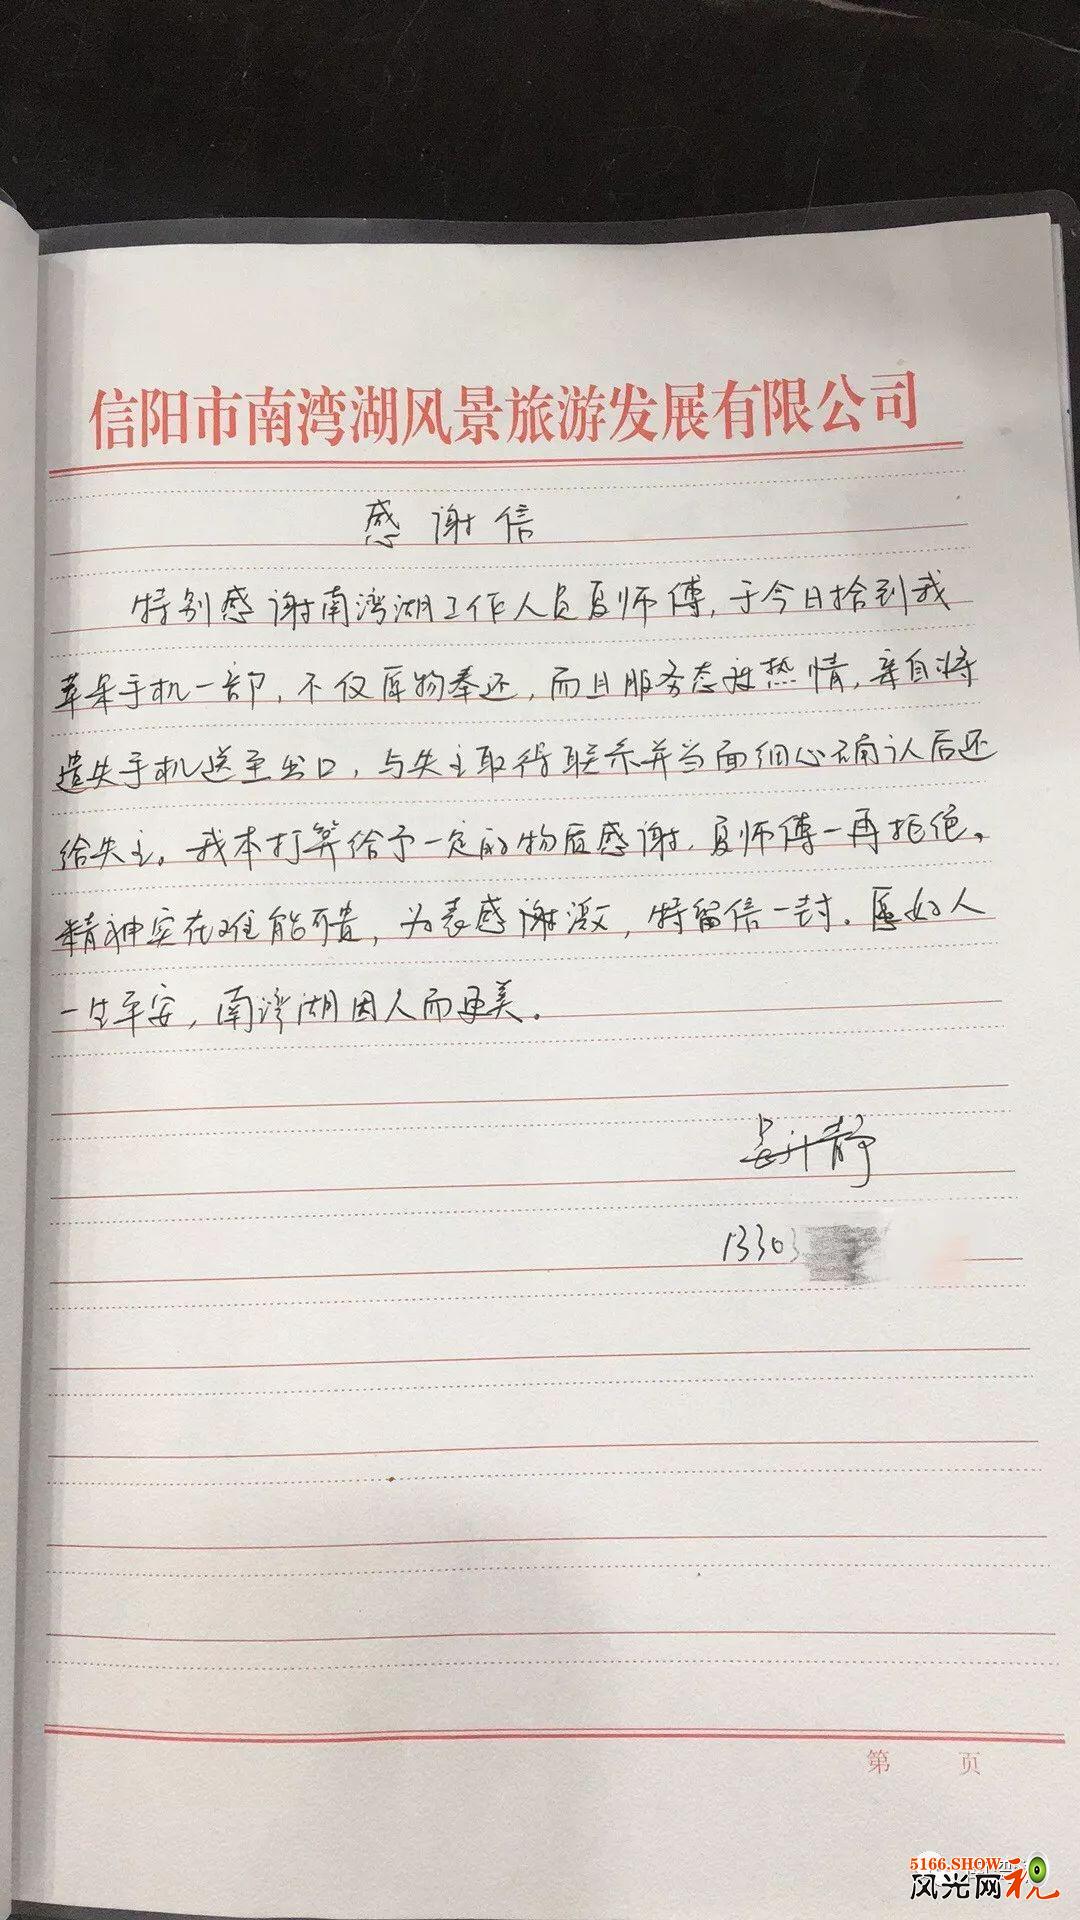 信阳市南湾湖风景旅游发展有限公司
感谢信
特别感谢南湾湖工作人员夏师傅，于今日拾到我
苹果手机一部，不仅原物奉还，而且服务态度热情，亲自将
遗失手机送至出口，与失主取得联系并当面细心确认后还
给失主。我本打算给予一定的物质感谢，夏师傅一再拒绝。
精神实在难能可贵，为表感谢激，特留信一封。愿好人
一生平安，南湾湖因人而更美。
静
13303
第 页
5166.SHOW
风光网视